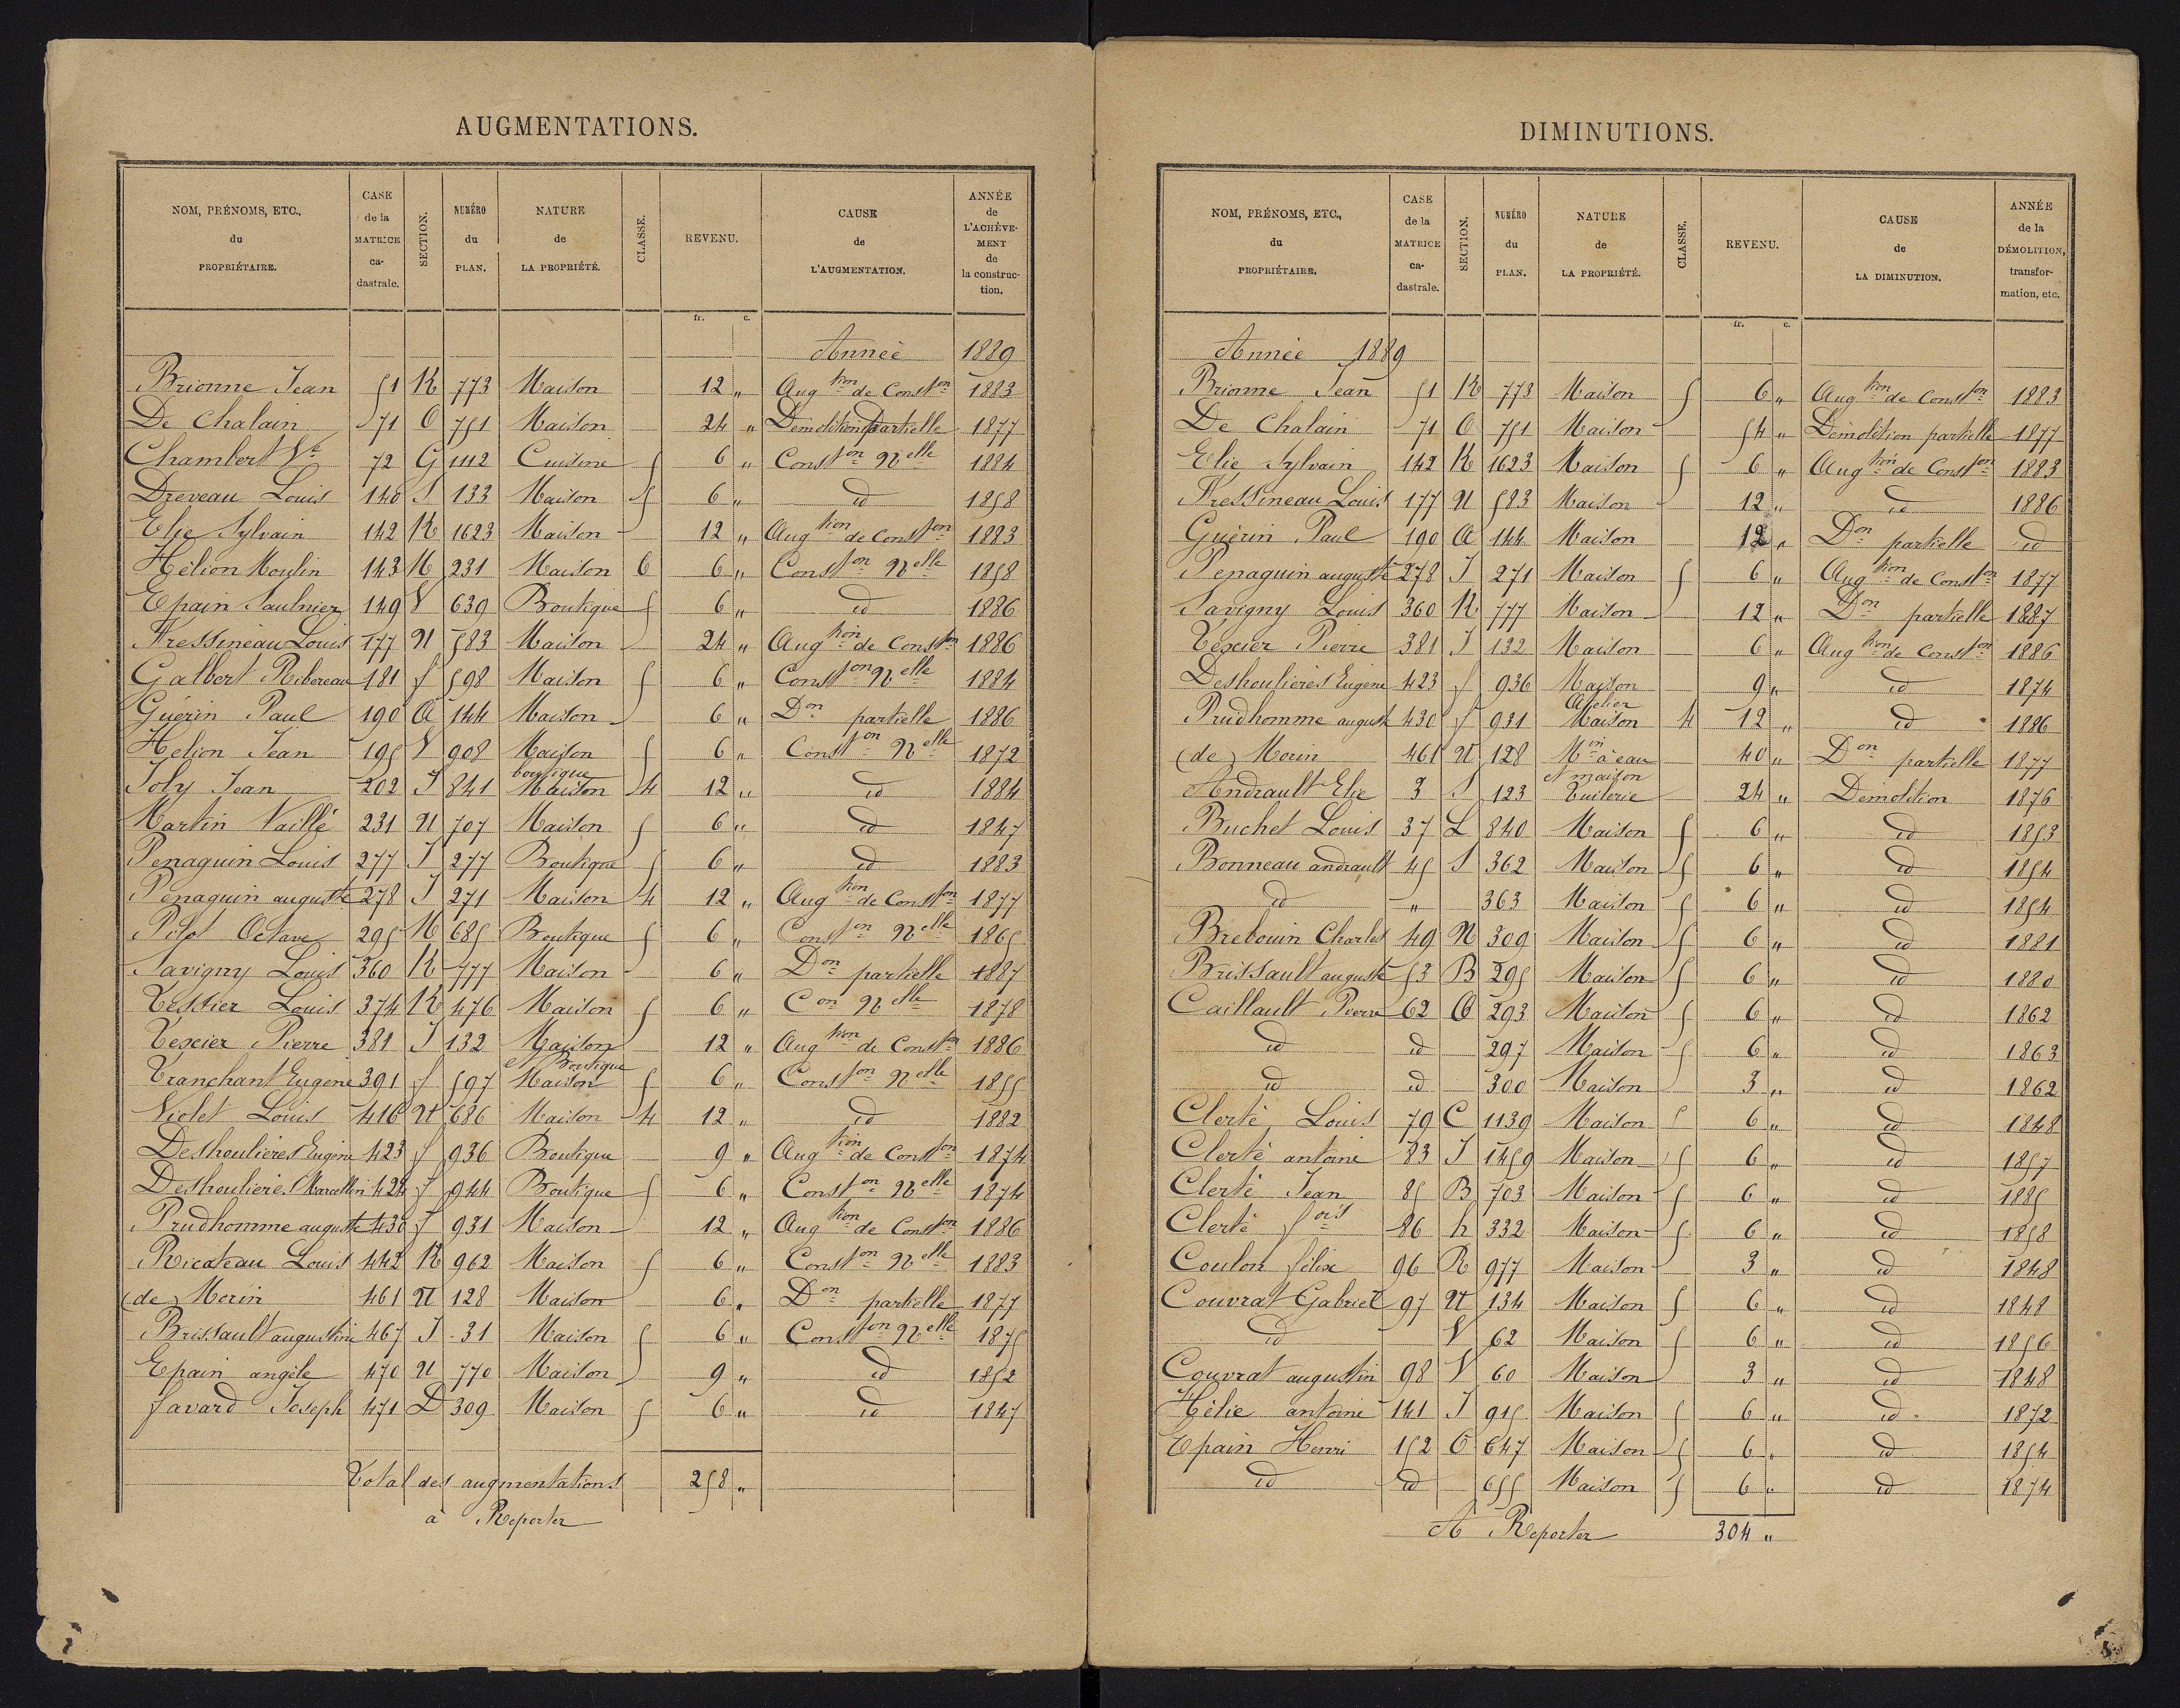 AUGMENTATIONS.
NOM, PRÉNOMS, ETC., du PROPRIÉTAIRE. | CASE de la MATRICE ca-dastrale. | SECTION. | NUMÉRO du PLAN. | NATURE de LA PROPRIÉTÉ. | CLASSE. | REVENU. | CAUSE de L'AUGMENTATION. | ANNÉE de L'ACHÈVE-MENT de la construc-tion.
fr. c.
Année 1889
Brionne Jean 51 K 773 Maison 12 " Augtion de Conston 1883
De Chalain 71 O 751 Maison 24 " Démolition Partielle 1877
Chambert Ve 72 G 1112 Cuisine 5 6 " Conston Nelle 1884
Dreveau Louis 140 S 133 Maison 5 6 " id 1858
Elie Sylvain 142 K 1623 Maison 12 " Augtion de Conston 1883
Hélion Moulin 143 M 231 Maison 6 6 " Conston Nelle 1858
Epain Saulnier 149 V 639 Boutique 5 6 " id 1886
Fressineau Louis 177 U 583 Maison 24 " Augtion de Conston 1886
Galbert Ribereau 181 f 598 Maison 5 6 " Conston Nelle 1884
Guérin Paul 190 A 144 Maison 6 " Don partielle 1886
Helion Jean 195 V 908 Maison 5 6 " Conston Nelle 1872
Joly Jean 202 J 841 boutique Maison 4 12 " id 1884
Martin Vaillé 231 U 707 Maison 5 6 " id 1847
Penaguin Louis 277 J 277 Boutique 5 6 " id 1883
Penaguin auguste 278 J 271 Maison 4 12 " Augtion de Conston 1877
Pilot Octave 295 M 685 Boutique 5 6 " Conston Nelle 1865
Savigny Louis 360 K 777 Maison 6 " Don partielle 1887
Tessier Louis 374 K 476 Maison 5 6 " Con Nelle 1878
Texier Pierre 381 J 132 Maison 12 " Augtion de Conston 1886
Tranchant Eugene 391 f 597 et Boutique Maison 5 6 " Conston Nelle 1855
Violet Louis 416 U 686 Maison 4 12 " id 1882
Deshoulieres Eugène 423 f 936 Boutique 9 " Augtion de Conston 1874
Deshoulieres Marcellin 424 f 944 Boutique 5 6 " Conston Nelle 1874
Prudhomme auguste 430 f 931 Maison 12 " Augtion de Conston 1886
Ricateau Louis 442 K 962 Maison 5 6 " Conston Nelle 1883
(de) Morin 461 U 128 Maison 6 " Don partielle 1877
Brissault augustine 467 J 31 Maison 5 6 " Conston Nelle 1875
Epain angèle 470 U 770 Maison 9 " id 1852
favard Joseph 471 D 309 Maison 5 6 " id 1847
Total des augmentations 258 "
à Reporter
DIMINUTIONS.
NOM, PRÉNOMS, ETC., du PROPRIÉTAIRE. | CASE de la MATRICE ca-dastrale. | SECTION. | NUMÉRO du PLAN. | NATURE de LA PROPRIÉTÉ. | CLASSE. | REVENU. | CAUSE de LA DIMINUTION. | ANNÉE de la DÉMOLITION, transfor-mation, etc.
fr. c.
Année 1889
Brionne Jean 51 K 773 Maison 5 6 " Augtion de Conston 1883
De Chalain 71 O 751 Maison 54 " Démolition partielle 1877
Elie Sylvain 142 K 1623 Maison 5 6 " Augtion de Conston 1883
Fressineau Louis 177 U 583 Maison 12 " id 1886
Guérin Paul 190 A 144 Maison 12 " Don partielle id
Penaguin auguste 278 J 271 Maison 5 6 " Augtion de Conston 1877
Savigny Louis 360 K 777 Maison 12 " Don partielle 1887
Texier Pierre 381 J 132 Maison 6 " Augtion de Conston 1886
Deshoulieres Eugene 423 f 936 Maison 9 " id 1874
Prudhomme auguste 430 f 931 Atelier Maison 4 12 " id 1886
(de) Morin 461 U 128 Min à eau 40 " Don partielle 1877
Andrault Elie 3 S 123 et maison Tuilerie 24 " Démolition 1876
Buchet Louis 37 L 840 Maison 5 6 " id 1853
Bonneau andrault 45 S 362 Maison 5 6 " id 1854
id " 363 Maison 5 6 " id 1854
Brebouin Charles 49 N 309 Maison 5 6 " id 1881
Brissault auguste 53 B 295 Maison 5 6 " id 1880
Caillault Pierre 62 O 293 Maison 5 6 " id 1862
id id 297 Maison 5 6 " id 1863
id id 300 Maison 3 " id 1862
Clerté Louis 79 C 1139 Maison 5 6 " id 1848
Clerté antoine 83 J 1459 Maison 5 6 " id 1857
Clerté Jean 85 B 703 Maison 5 6 " id 1885
Clerté fois 86 h 332 Maison 5 6 " id 1858
Coulon félix 96 R 977 Maison 3 " id 1848
Couvrat Gabriel 97 U 134 Maison 5 6 " id 1848
id V 62 Maison 5 6 " id 1856
Couvrat augustin 98 V 60 Maison 3 " id 1848
Hélie antoine 141 J 915 Maison 5 6 " id 1872
Epain Henri 152 O 647 Maison 5 6 " id 1854
id id 655 Maison 5 6 " id 1874
A Reporter 304 "